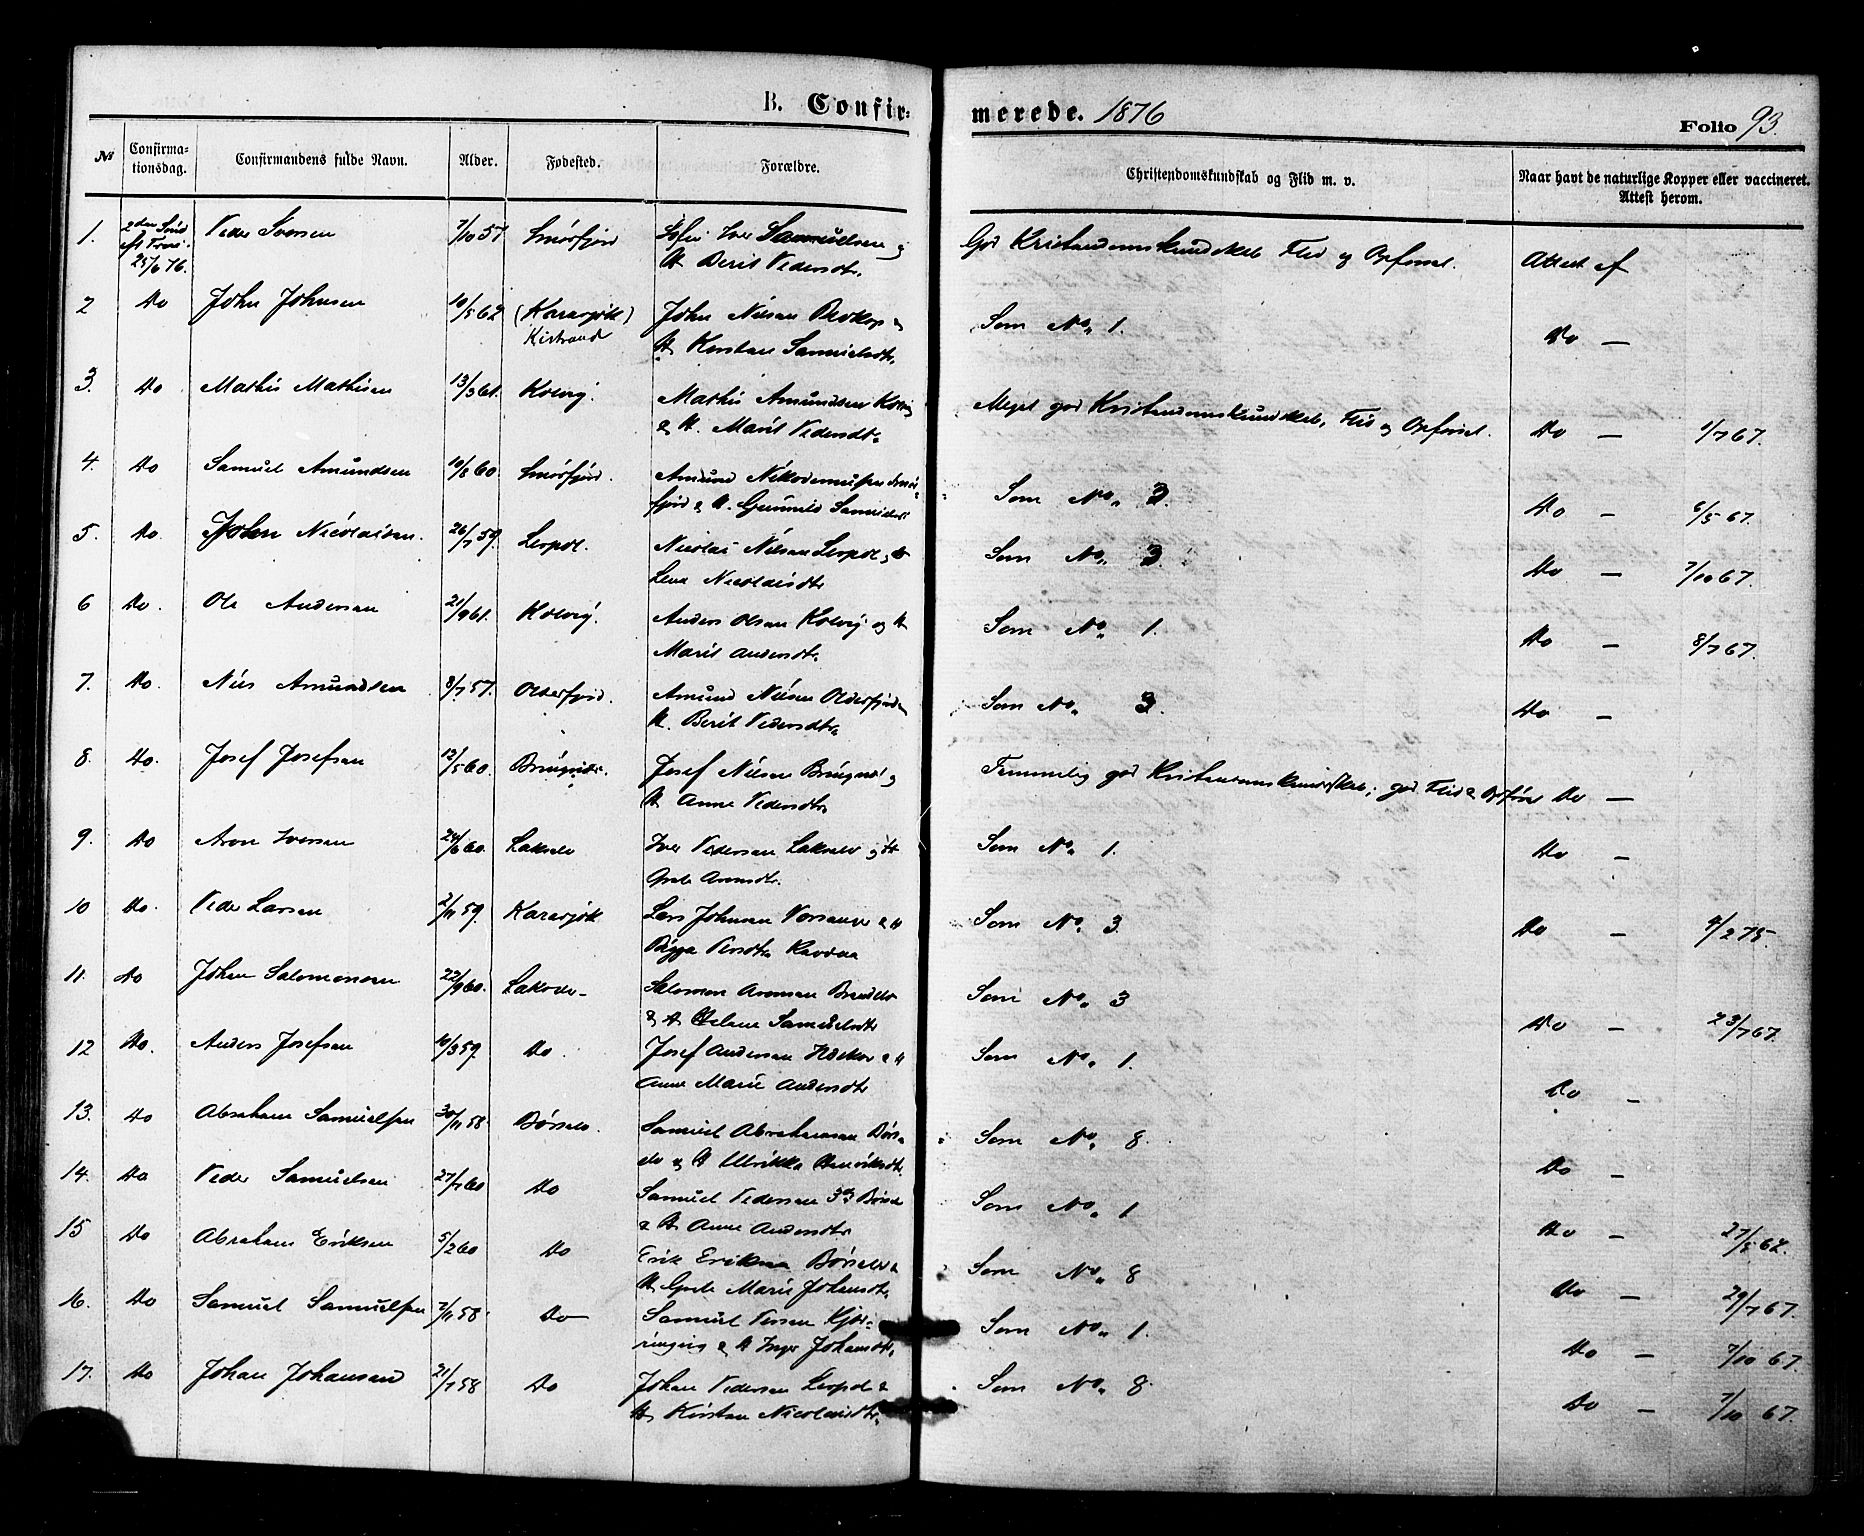 B. Confir-
merede. 1876
Folio 93.
№ Confirma-tionsdag. Confirmandens fulde Navn. Alder. Fødested. Forældre. Christendomskundskab og Flid m. v. Naar havt de naturlige Kopper eller vaccineret. Attest herom.
1. 2den Sønd eft. Trini. 25/6 76. Peder Iversen 7/10 57 Smørfjord Iver Samuelsen og God Kristendomskundskab Flid og Opførsel. Attest af
H. Berit Pedersdtr.
2 Do John Johnsen 10/5 62 (Karasjok) John Nilsen og Som No. 1. Do —
Kistrand H. Kirsten Samuelsdtr.
3. Do Mathis Mathisen 13/3 61. Kolvig. Mathis Amundsen Kolvig Meget god Kristendomskundskab, Flid og Opførsel. Do — 1/7 67.
& H. Marit Pedersdtr.
4. Do Samuel Amundsen 10/8 60. Smørfjord. Amund Nikodemussen Smør- Som No. 3. Do — 6/5 67.
fjord & H. Gunnild Samuelsdtr
5. Do. John Nicolaisen. 26/7 59. Lerpol. Nicolai Nilsen Lerpol, & Som No. 3. Do — 7/10 67.
Lena Nicolaisdtr
6 Do. Ole Andersen 21/9 61. Kolvig. Anders Olsen Kolvig og H Som No. 1. Do — 8/7 67.
Marit Andersdtr.
7. Do. Nils Amundsen 8/7 57. Olderfjord. Amund Nilsen Olderfjord & Som No. 3. Do —
H. Berit Pedersdtr.
8. Do. Josef Josefsen 12/5 60. Bringnæs. Josef Nilsen Bringnæs og Temmelig god Kristendomskundskab; god Flid & Opførsel Do —
H. Anne Pedersdtr
9. Do Aron Iversen 24/6 60. Lakselv Iver Pedersen Lakselv og H Som No. 1. Do —
Grete Aronsdtr.
10 Do. Peder Larsen 2/11 59. Karasjok Lars Johnsen & H Som No. 3. Do — 4/2 75.
11. Do Johan Salomonsen 22/9 60. Lakselv- Salomon Aronsen Som No. 3 Do — 23/7 67.
& H Helene Samuelsdtr
12 Do. Anders Josefsen 10/3 59. Do. Josef Andersen & H Som No. 1. Do —
Anne Marie Andersdtr
13. Do Abraham Samuelsen 30/11 58. Børselv. Samuel Abrahamsen Børs- Som No. 8. Do —
elv & H Ulrikka Henriksdtr.
14. Do Peder Samuelsen 27/7 60 Do Samuel Pedersen Børselv Som No. 1 Do — 27/8 62.
& H. Anne Andersdtr
15 Do Abraham Eriksen 5/2 60 Do Erik Eriksen Børselv & Som No. 8 Do — 29/7 67.
H Grete Marie Johansdtr.
16. Do Samuel Samuelsen 2/11 58. Do Samuel Persen Kjær- Som No. 1. Do — 7/10 67.
ringvig & H Inger Johansdtr.
17. Do Johan Johansen 21/7 58 Do Johan Pedersen Lerpol & Som No. 8. Do — 7/10 67.
H. Kirsten Nicolaisdtr.